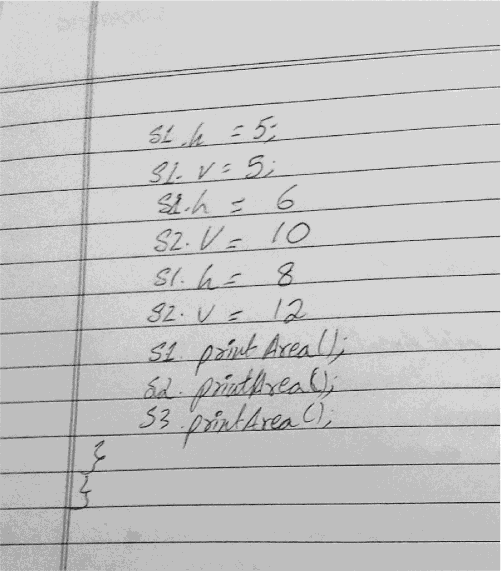 S1.h = 5;
S1.v = 5;
S2.h = 6
S2.v = 10
S1.h = 8
S2.v = 12
S1.printArea();
S2.printArea();
S3.printArea();
}
}